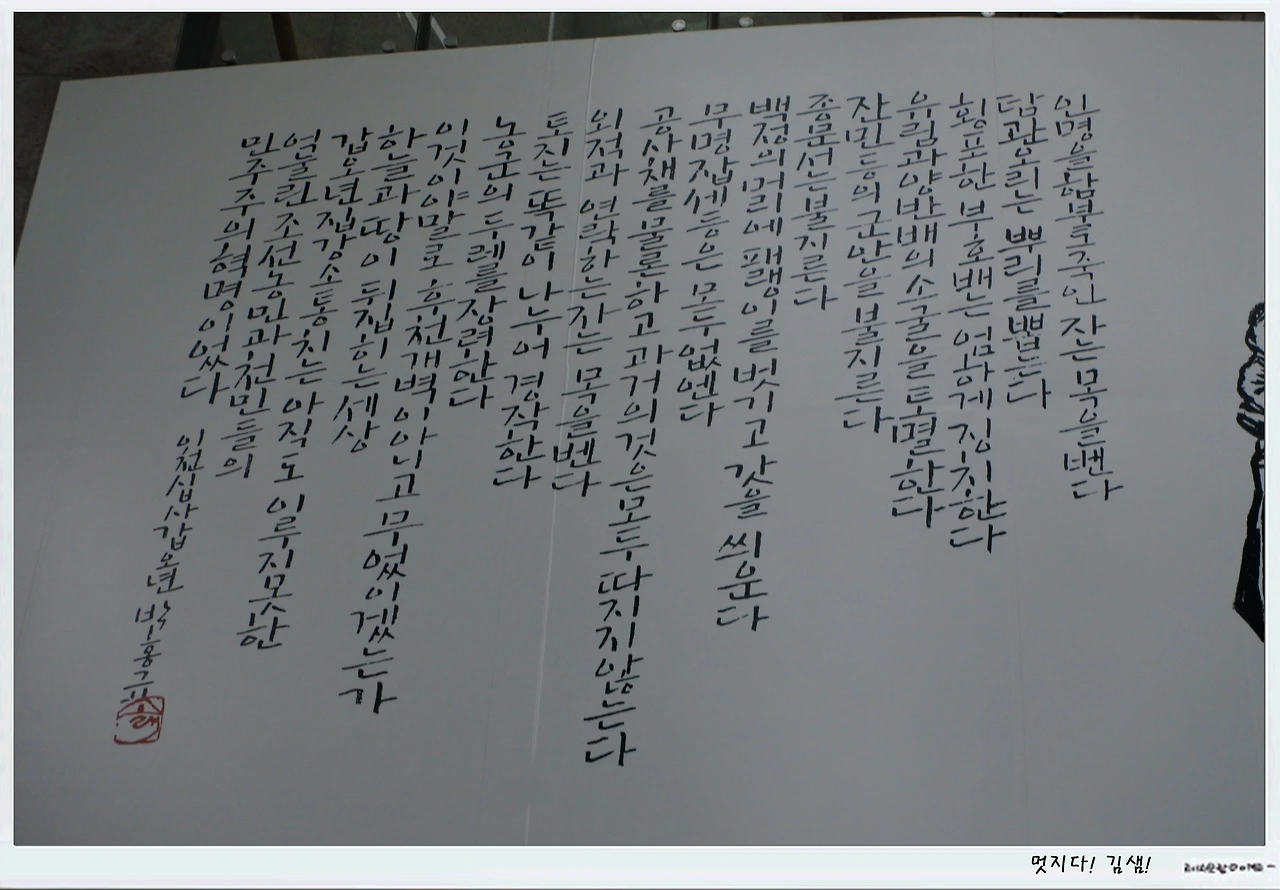 인명을 함부로 죽인 자는 목을 밴다
탐관오리는 뿌리를 뽑는다
횡포한 부호배는 엄하게 징치한다
유림과 양반배의 소굴을 토멸한다
잔민등의 군안을 불지른다
종문선는 불지른다
백정의 머리에 패랭이를 벗기고 갓을 씌운다
무명잡세등은 모두 없엔다
공사채를 물론하고 과거의 것은 모두 따지지 않는다
외적과 연락하는 자는 목을 벤다
토지는 똑같이 나누어 경작한다
농군의 두레를 장려한다
이것이야말로 후천개벽이 아니고 무었이겠는가
하늘과 땅이 뒤집히는 세상
갑오년 집강소 통치는 아직도 이루지 못한
얼눌린 조선농민과 천민들의
민주주의 혁명이었다
이천십사 갑오년 박홍규
멋지다! 김샘!